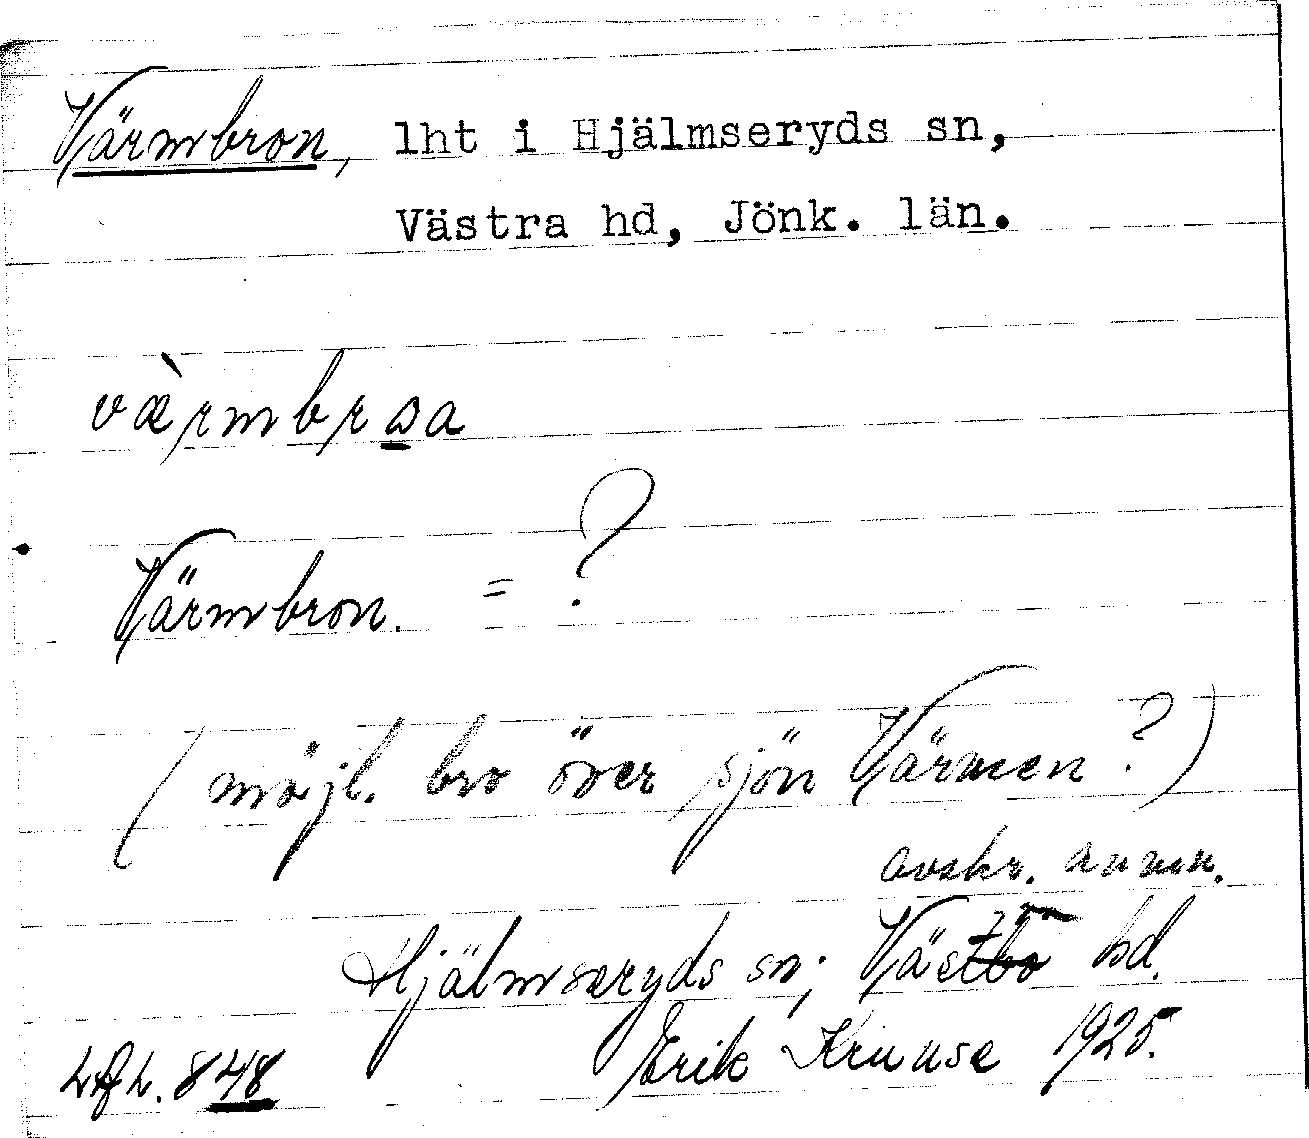 Värmbron, lht i Hjälmseryds sn,
Västra hd, Jönk. län.
værmbroa
Värmbron. = ?
(möjl. bro över sjön Värmen?)
avskr. anm.
Hjälmseryds sn; Västra hd.
Erik Kruuse 1925.
848